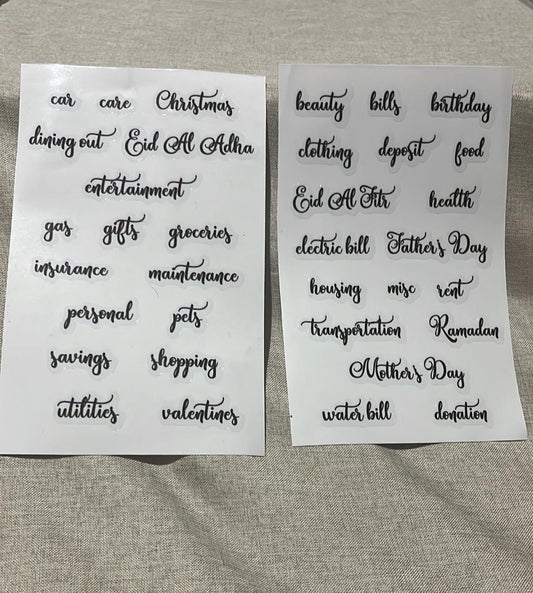 car care Christmas
dining out Eid Al Adha
entertainment
gas gifts groceries
insurance maintenance
personal pets
savings shopping
utilities valentines
beauty bills birthday
clothing deposit food
Eid Al Fitr health
electric bill Father's Day
housing misc rent
transportation Ramadan
Mother's Day
water bill donation